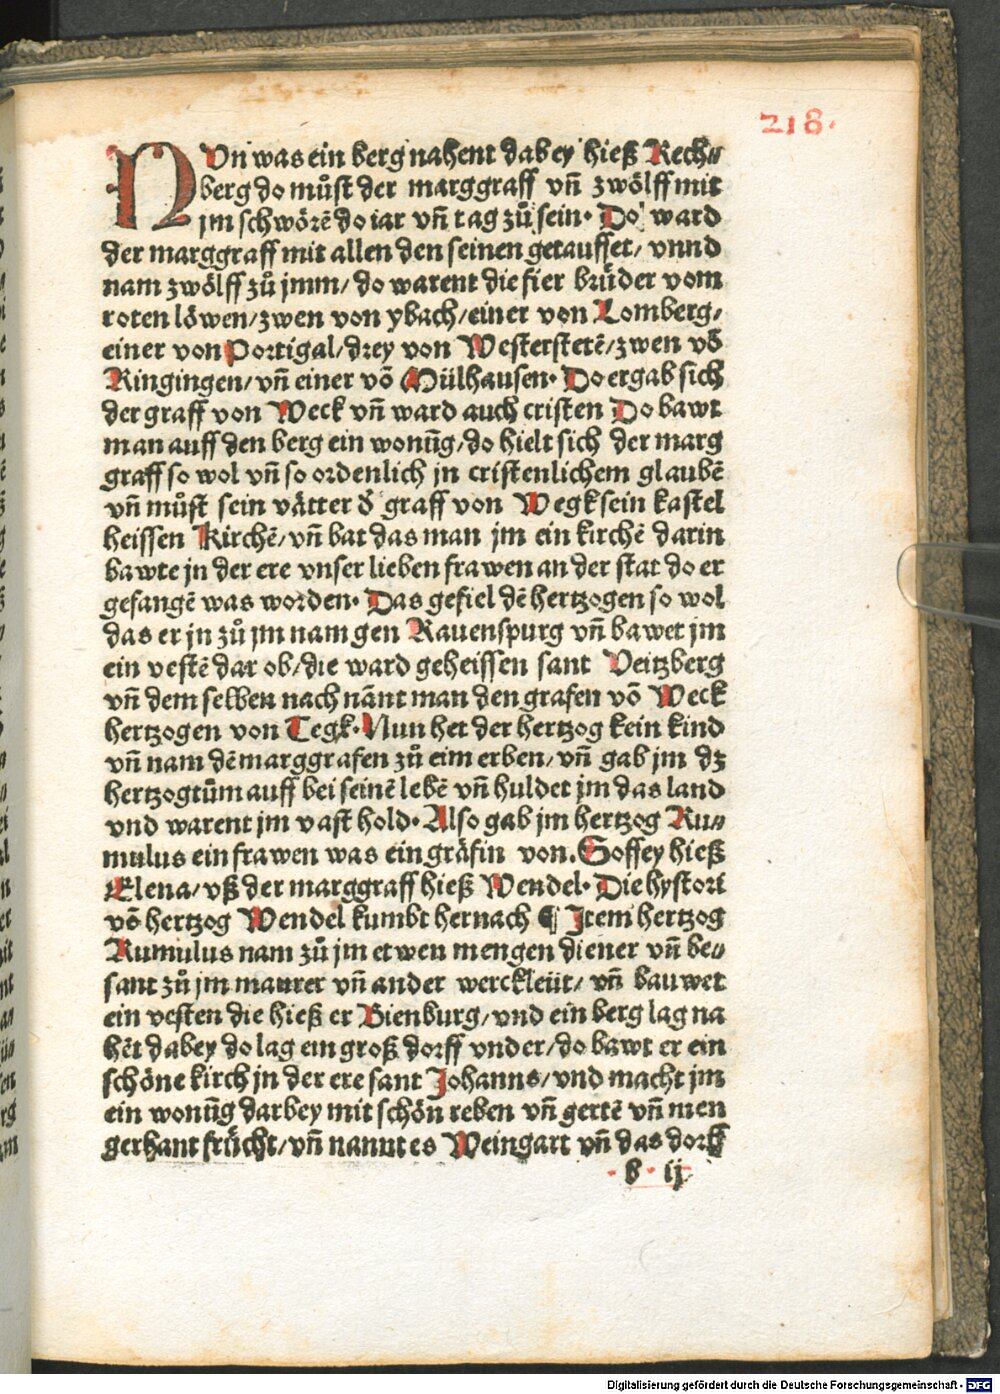 218.
NUn was ein berg nahent dabey hieß Rech⸗
berg do můst der marggraff vñ zwölff mit
jm schwörē do iar vñ tag zů sein. Do ward
der marggraff mit allen den seinen getauffet/ vnnd
nam zwölff zů jmm/ do warent die fier brůder vom
roten löwen/ zwen von ybach/ einer von Lomberg/
einer von Portigal/ drey von Westersterē/ zwen vō
Ringingen/ vñ einer vō Mülhausen. Do ergab sich
der graff von Weck vñ ward auch cristen Do bawt
man auff den berg ein wonūg/ do hielt sich der marg
graff so wol vñ so ordenlich jn cristenlichem glaubē
vñ můst sein vätter d̄ graff von Wegk sein kastel
heissen Kirchē/ vñ bat das man jm ein kirchē darin
bawte jn der ere vnser lieben frawen an der stat do er
gefangē was worden. Das gefiel dē hertzogen so wol
das er jn zů jm nam gen Rauenspurg vñ bawet jm
ein vestē dar ob/ die ward geheissen sant Veitzberg
vñ dem selben nach nānt man den grafen vō Weck
hertzogen von Tegk. Nun het der hertzog kein kind
vñ nam dē marggrafen zů eim erben/ vñ gab jm dz
hertzogtům auff bei seinē lebē vñ huldet jm das land
vnd warent jm vast hold. Also gab jm hertzog Ru⸗
mulus ein frawen was ein gräfin von. Soffey hieß
Elena/ vß der marggraff hieß Wendel. Die hystori
vō hertzog Wendel kumbt hernach ¶ Item hertzog
Rumulus nam zů jm etwen mengen diener vñ be⸗
sant zů jm maurer vñ ander werckleüt/ vñ bauwet
ein vesten die hieß er Bienburg/ vnd ein berg lag na
hēt dabey do lag ein groß dorff vnder/ do bawt er ein
schöne kirch jn der ere sant Johanns/ vnd macht jm
ein wonūg darbey mit schön reben vñ gertē vñ men
gerhant frücht/ vñ nannt es Weingart vñ das dorff
b ij
Digitalisierung gefördert durch die Deutsche Forschungsgemeinschaft - DFG